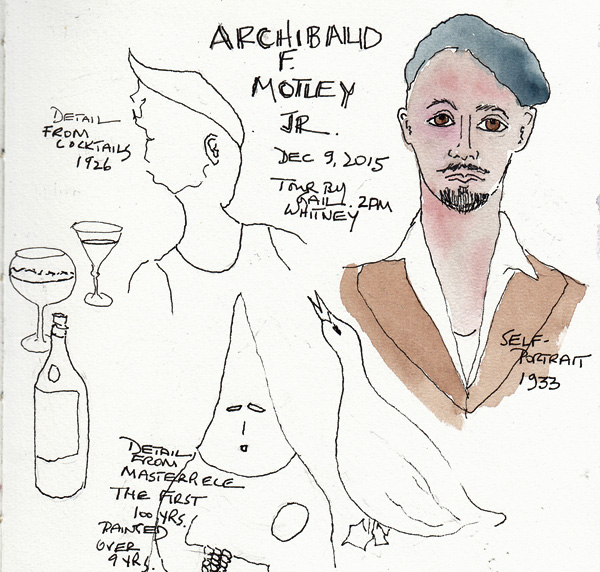 ARCHIBALD
F.
MOTLEY
JR.
DEC 9, 2015
TOUR BY
GAIL. 2PM
WHITNEY
DETAIL
FROM
COCKTAILS
1926
SELF-
PORTRAIT
1933
DETAIL
FROM
MASTERPIECE
THE FIRST
100 YRS.
PAINTED
OVER
9 YRS.